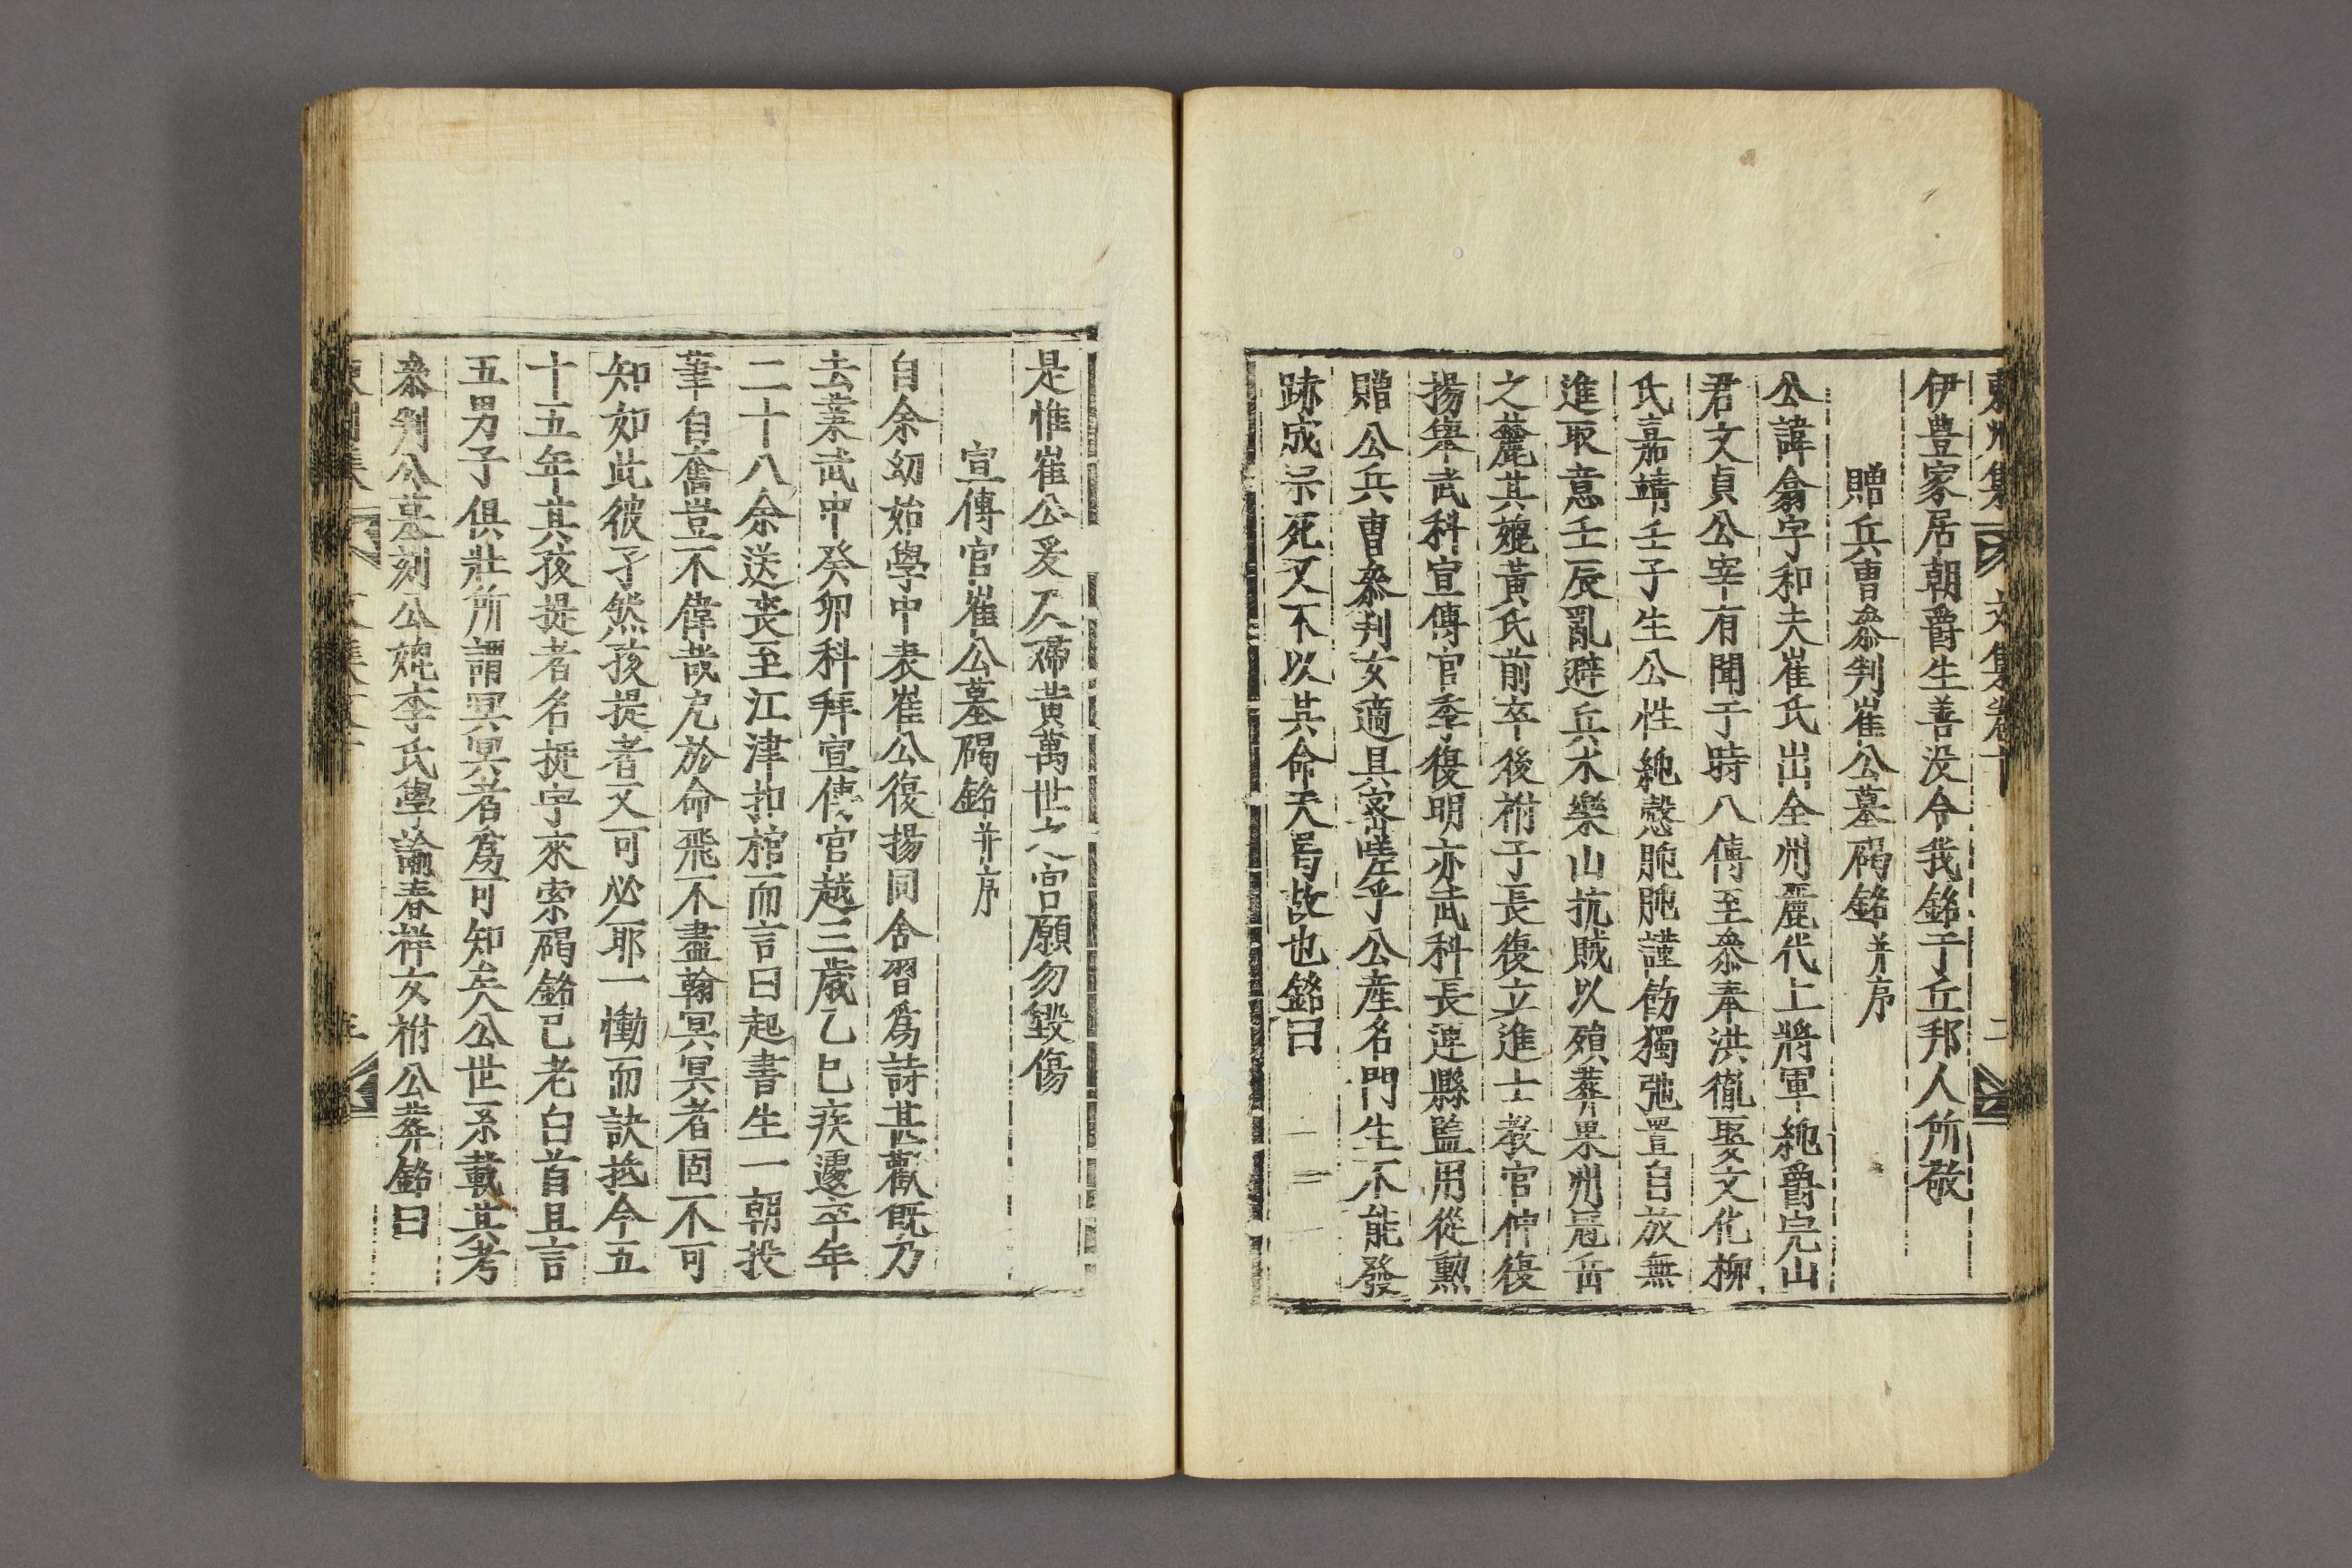 東州集 文集卷十 二
伊豊家居朝爵生善没令我銘于丘邦人所敬
贈兵曹叅判崔公墓碣銘并序
公諱弇字和夫崔氏出全州麗代上將軍純爵完山
君文貞公宰有聞于時八傳至叅奉洪㒞娶文化柳
氏嘉靖壬子生公性純慤肫肫謹飭獨弛置自放無
進取意壬辰亂避兵木樂山抗賊以殞葬果州冠岳
之麓其嫓黃氏前卒後祔子長復立進士敎官仲復
揚擧武科宣傳官季復明亦武科長連縣監用從勳
贈公兵曹叅判女適具宻嗟乎公産名門生不能發
跡成宗死又不以其命天焉故也銘曰
是惟崔公爰及嬪黃萬世之宮願勿毀傷
宣傳官崔公墓碣銘并序
自余幼始學中表崔公復揚同舍習爲詩甚歡旣乃
去業武中癸卯科拜宣傳官越三歲乙巳疾遽卒年
二十八余送喪至江津扣棺而言曰起書生一朝投
筆自奮豈不偉哉戹於命飛不盡翰冥冥者固不可
知如此彼孑然孩提者又可必耶一慟而訣抵今五
十五年其孩提者名挻字來索碣銘已老白首且言
五男子俱壯所謂冥冥者爲可知矣公世系載其考
叅判公墓刻公嫓李氏學諭春祥女祔公葬銘曰